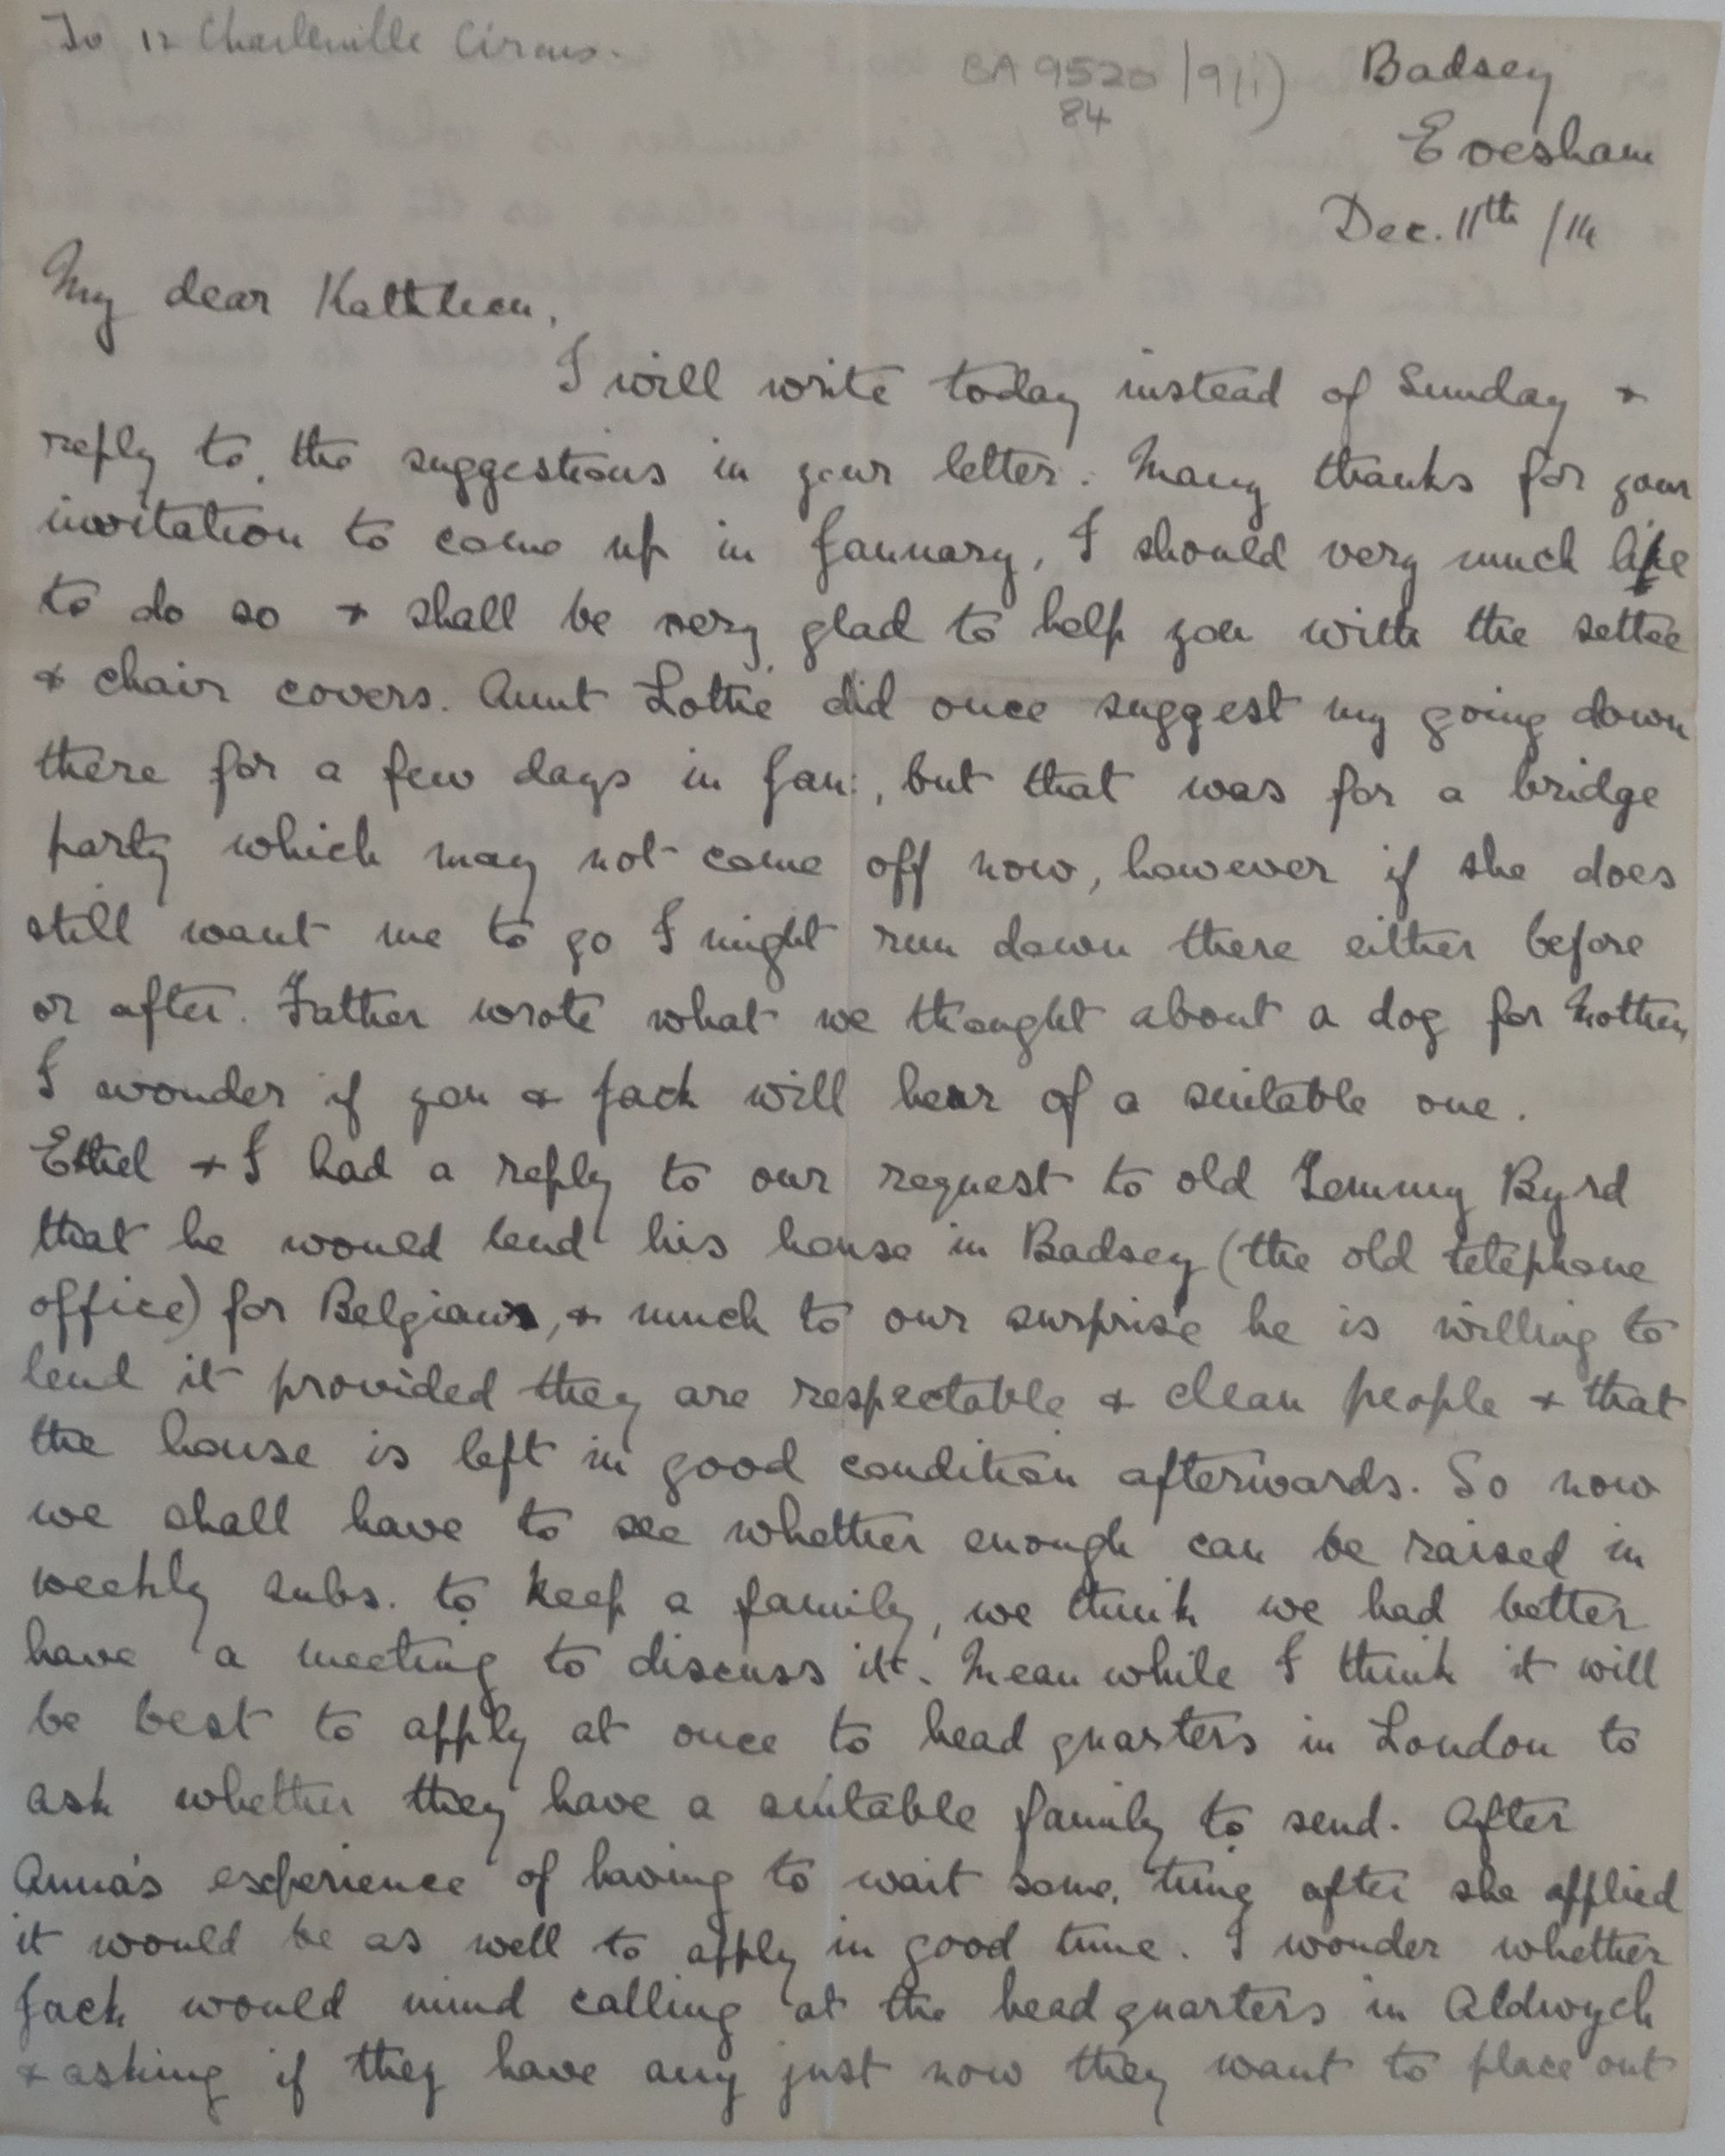 To 12 Charleville Circus.
BA 9520/9(i)
84
Badsey
Evesham
Dec. 11th /14
My dear Kathleen,
I will write today instead of Sunday &
reply to the suggestions in your letter. Many thanks for your
invitation to come up in January, I should very much like
to do so & shall be very glad to help you with the settee
& chair covers. Aunt Lottie did once suggest my going down
there for a few days in Jan:, but that was for a bridge
party which may not come off now, however if she does
still want me to go I might run down there either before
or after. Father wrote what we thought about a dog for Mother,
I wonder if you & Jack will hear of a suitable one.
Ethel & I had a reply to our request to old Tommy Byrd
that he would lend his house in Badsey (the old telephone
office) for Belgians, & much to our surprise he is willing to
lend it provided they are respectable & clean people & that
the house is left in good condition afterwards. So now
we shall have to see whether enough can be raised in
weekly subs. to keep a family, we think we had better
have a meeting to discuss it. Mean while I think it will
be best to apply at once to head quarters in London to
ask whether they have a suitable family to send. After
Anna's experience of having to wait some time after she applied
it would be as well to apply in good time. I wonder whether
Jack would mind calling at the head quarters in Aldwych
& asking if they have any just now they want to place out